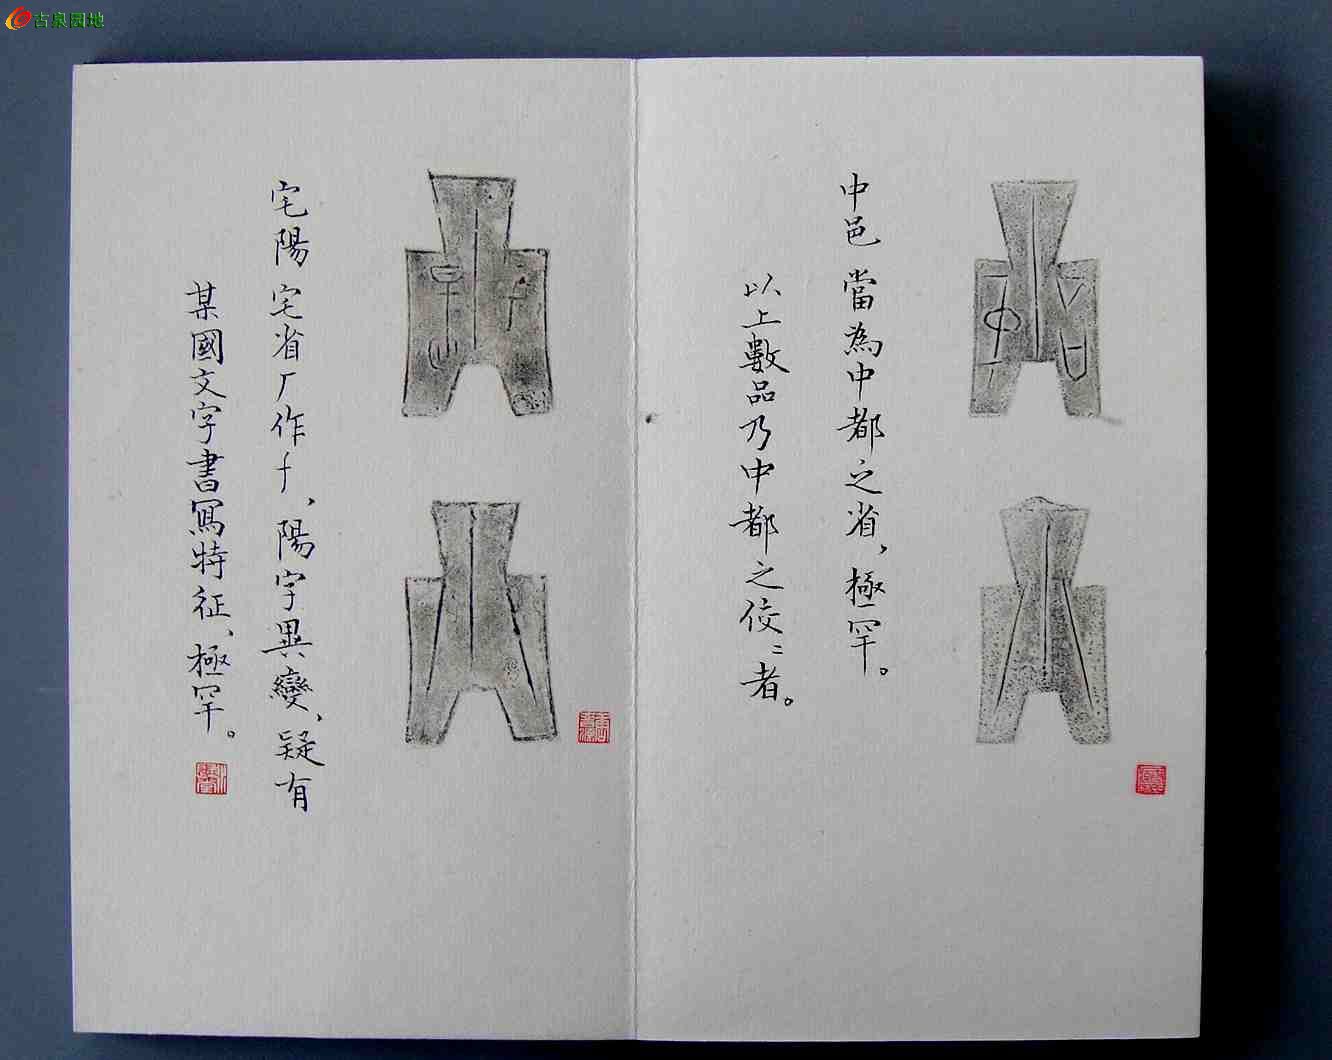 古泉园地
中邑 當為中都之省，極罕。
以上數品乃中都之佼〻者。
宅陽 宅省厂作亻、陽字異變、疑有
某國文字書寫特征、極罕。